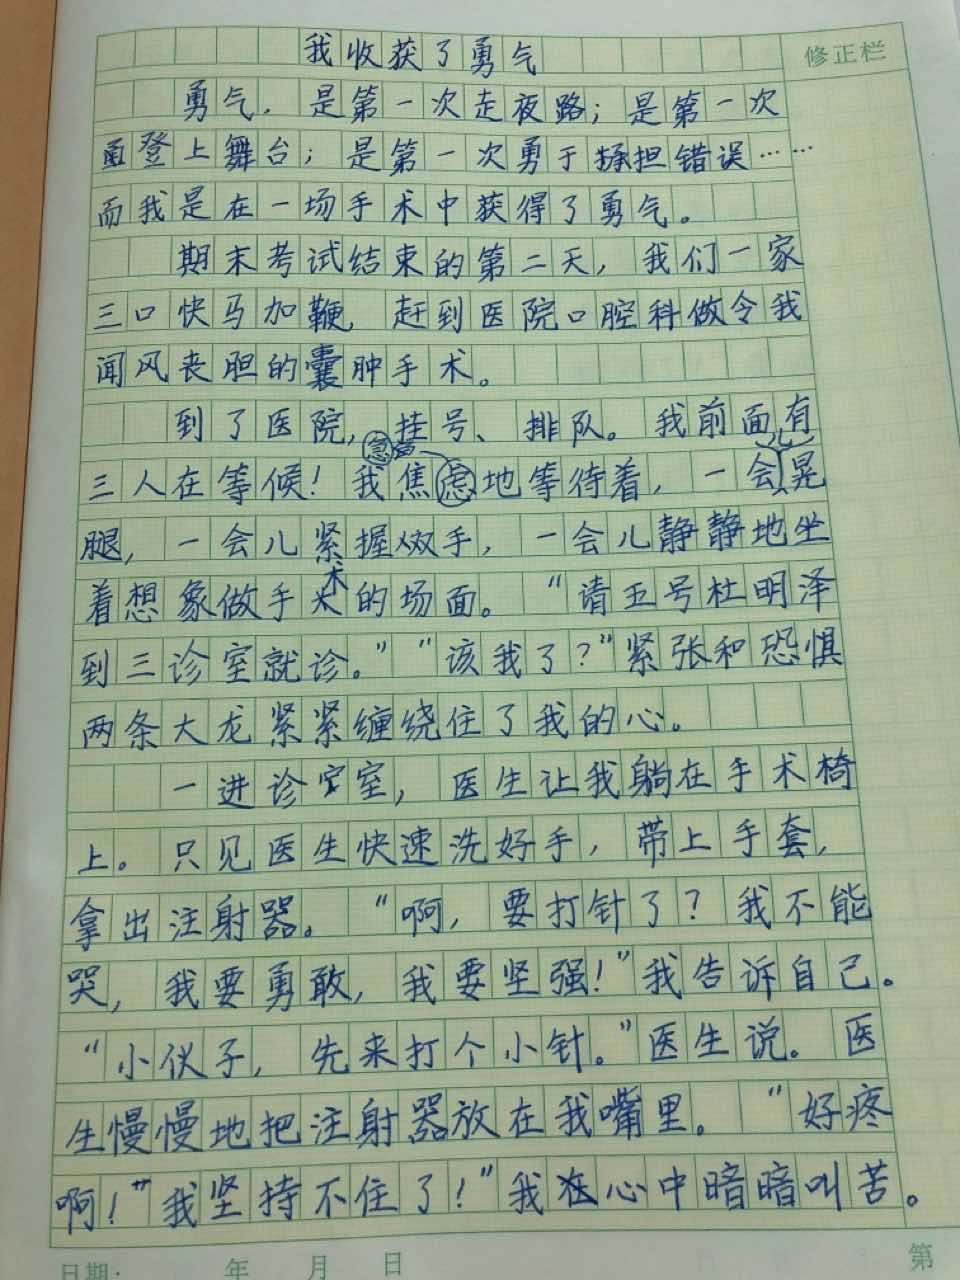 我收获了勇气
修正栏
勇气，是第一次走夜路；是第一次
登上舞台；是第一次勇于承担错误……
而我是在一场手术中获得了勇气。
期末考试结束的第二天，我们一家
三口快马加鞭，赶到医院口腔科做令我
闻风丧胆的囊肿手术。
到了医院，挂号、排队。我前面有
三人在等候！我焦虑地等待着，一会儿晃
腿，一会儿紧握双手，一会儿静静地坐
着想象做手术的场面。“请五号杜明泽
到三诊室就诊。”“该我了？”紧张和恐惧
两条大龙紧紧缠绕住了我的心。
一进诊室，医生让我躺在手术椅
上。只见医生快速洗好手，带上手套，
拿出注射器。“啊，要打针了？我不能
哭，我要勇敢，我要坚强！”我告诉自己。
“小伙子，先来打个小针。”医生说。医
生慢慢地把注射器放在我嘴里。“好疼
啊！”“我坚持不住了！”我在心中暗暗叫苦。
日期： 年 月 日 第